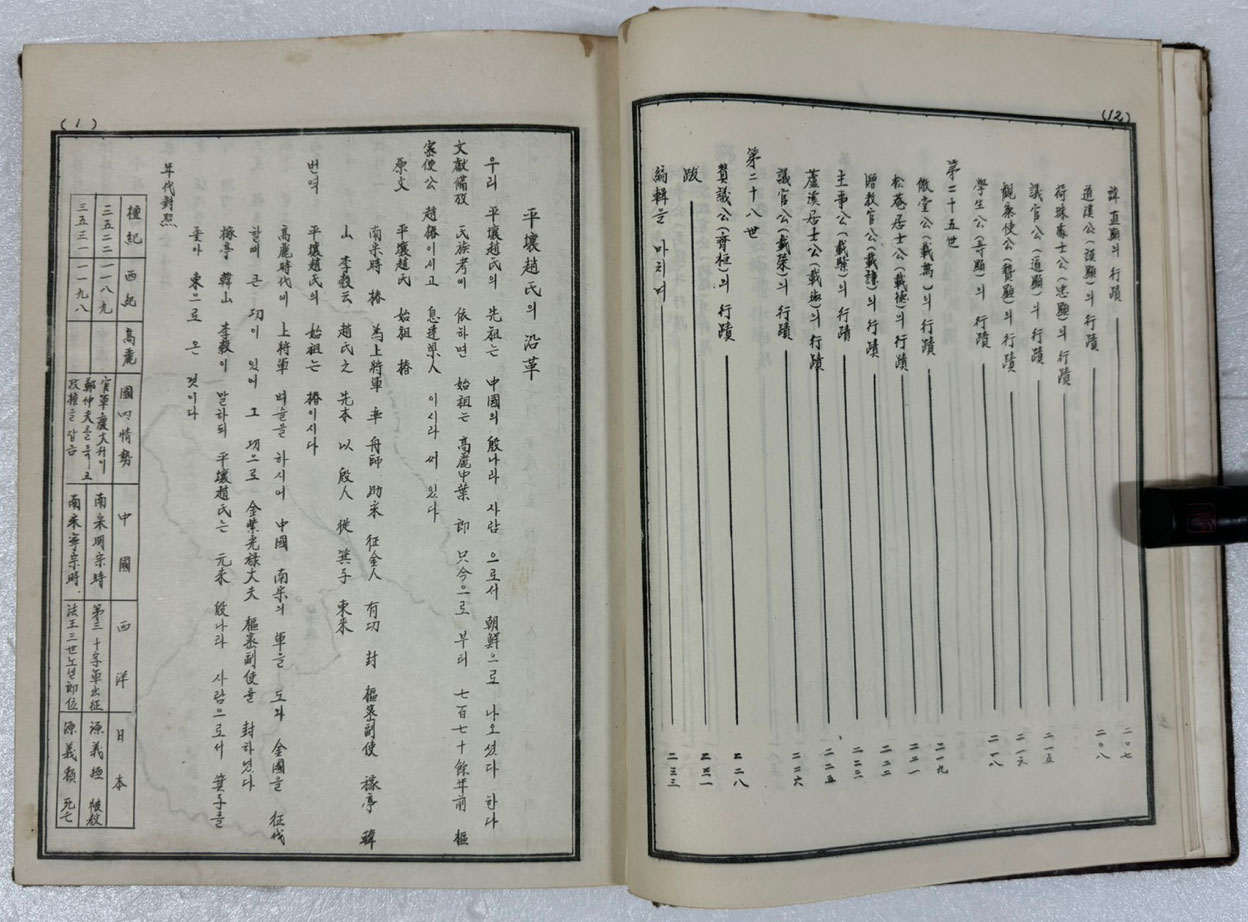 (12)
諱直顯의 行蹟 二〇七
公(謨顯)의 行蹟 二〇八
荷珠處士公(忠顯)의 行蹟
議官公(道顯)의 行蹟 二一五
觀察使公(贊顯)의 行蹟 二一六
學生公(奇顯)의 行蹟 二一八
第二十五世
傲堂公(載萬)의 行蹟 二一九
松菴居士公(載)의 行蹟 二二一
贈敎官公(載謙)의 行蹟 二二二
主事公(載)의 行蹟 二二三
蘆溪居士公(載)의 行蹟 二二五
議官公(載榮)의 行蹟 二二六
第二十八世
贊議公(齊桓)의 行蹟 二二八
跋 二三一
編輯을 마치며 二三三
(1)
平壤趙氏의 沿革
우리 平壤趙氏의 先祖는 中國의 殷나라 사람 으로서 朝鮮으로 나오셨다 한다
文獻備攷 氏族考에 依하면 始祖는 高麗中葉 即 只今으로 부터 七百七十餘年前 樞
密使公 趙椿이시고 息達縣人 이시라 써 있다
原文 平壤趙氏 始祖 椿
南宋時 椿 為上將軍 率舟師 助宋 征金人 有功 封 樞密副使 稼亭 韓
山 李穀云 趙氏之 先本 以 殷人 從 箕子 東來
번역 平壤趙氏의 始祖는 椿이시다
高麗時代에 上將軍 벼슬을 하시며 中國 南宋의 軍을 도와 金國을 征伐
할때 큰 功이 있어 그 功으로 金紫光祿大夫 樞密副使를 封하였다
稼亭 韓山 李穀이 말하되 平壤趙氏는 元來 殷나라 사람으로서 箕子를
좇아 東으로 온 것이다
年代對照
檀紀 西紀 高麗 國內情勢 中國 西洋 日本
三五二二 一一八九 官軍慶大升이 鄭仲夫를 죽이고 政權을 잡음 南宋 明宗時 第三十字軍出征 源義經 被殺
三五三一 一一九八 南宋 寧宗時 法王三世 即位 源義賴 死亡